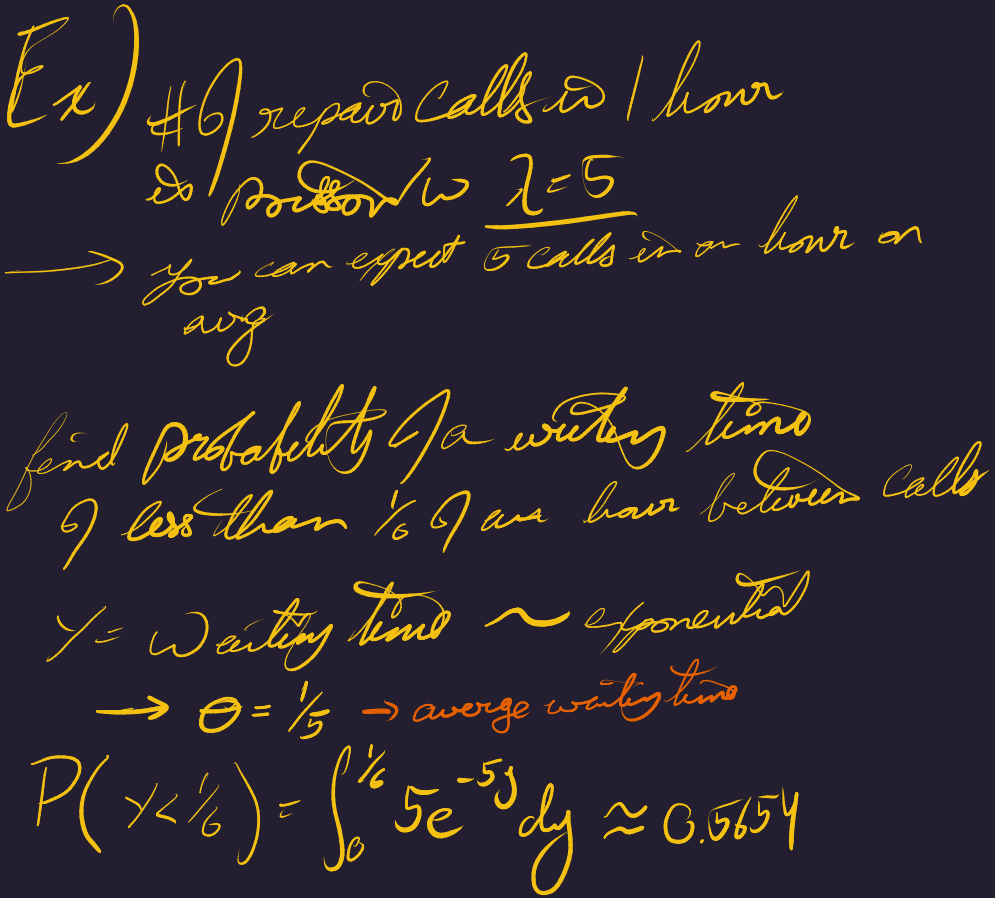 Ex) # of repair calls in 1 hour
is poisson w/ λ=5
→ you can expect 5 calls in an hour on
avg
find probability of a waiting time
of less than 1/6 of an hour between calls
Y = Waiting time ~ exponential
→ θ = 1/5 → averge waiting time
P(Y<1/6) = ∫₀^{1/6} 5e^{-5y} dy ≈ 0.5654